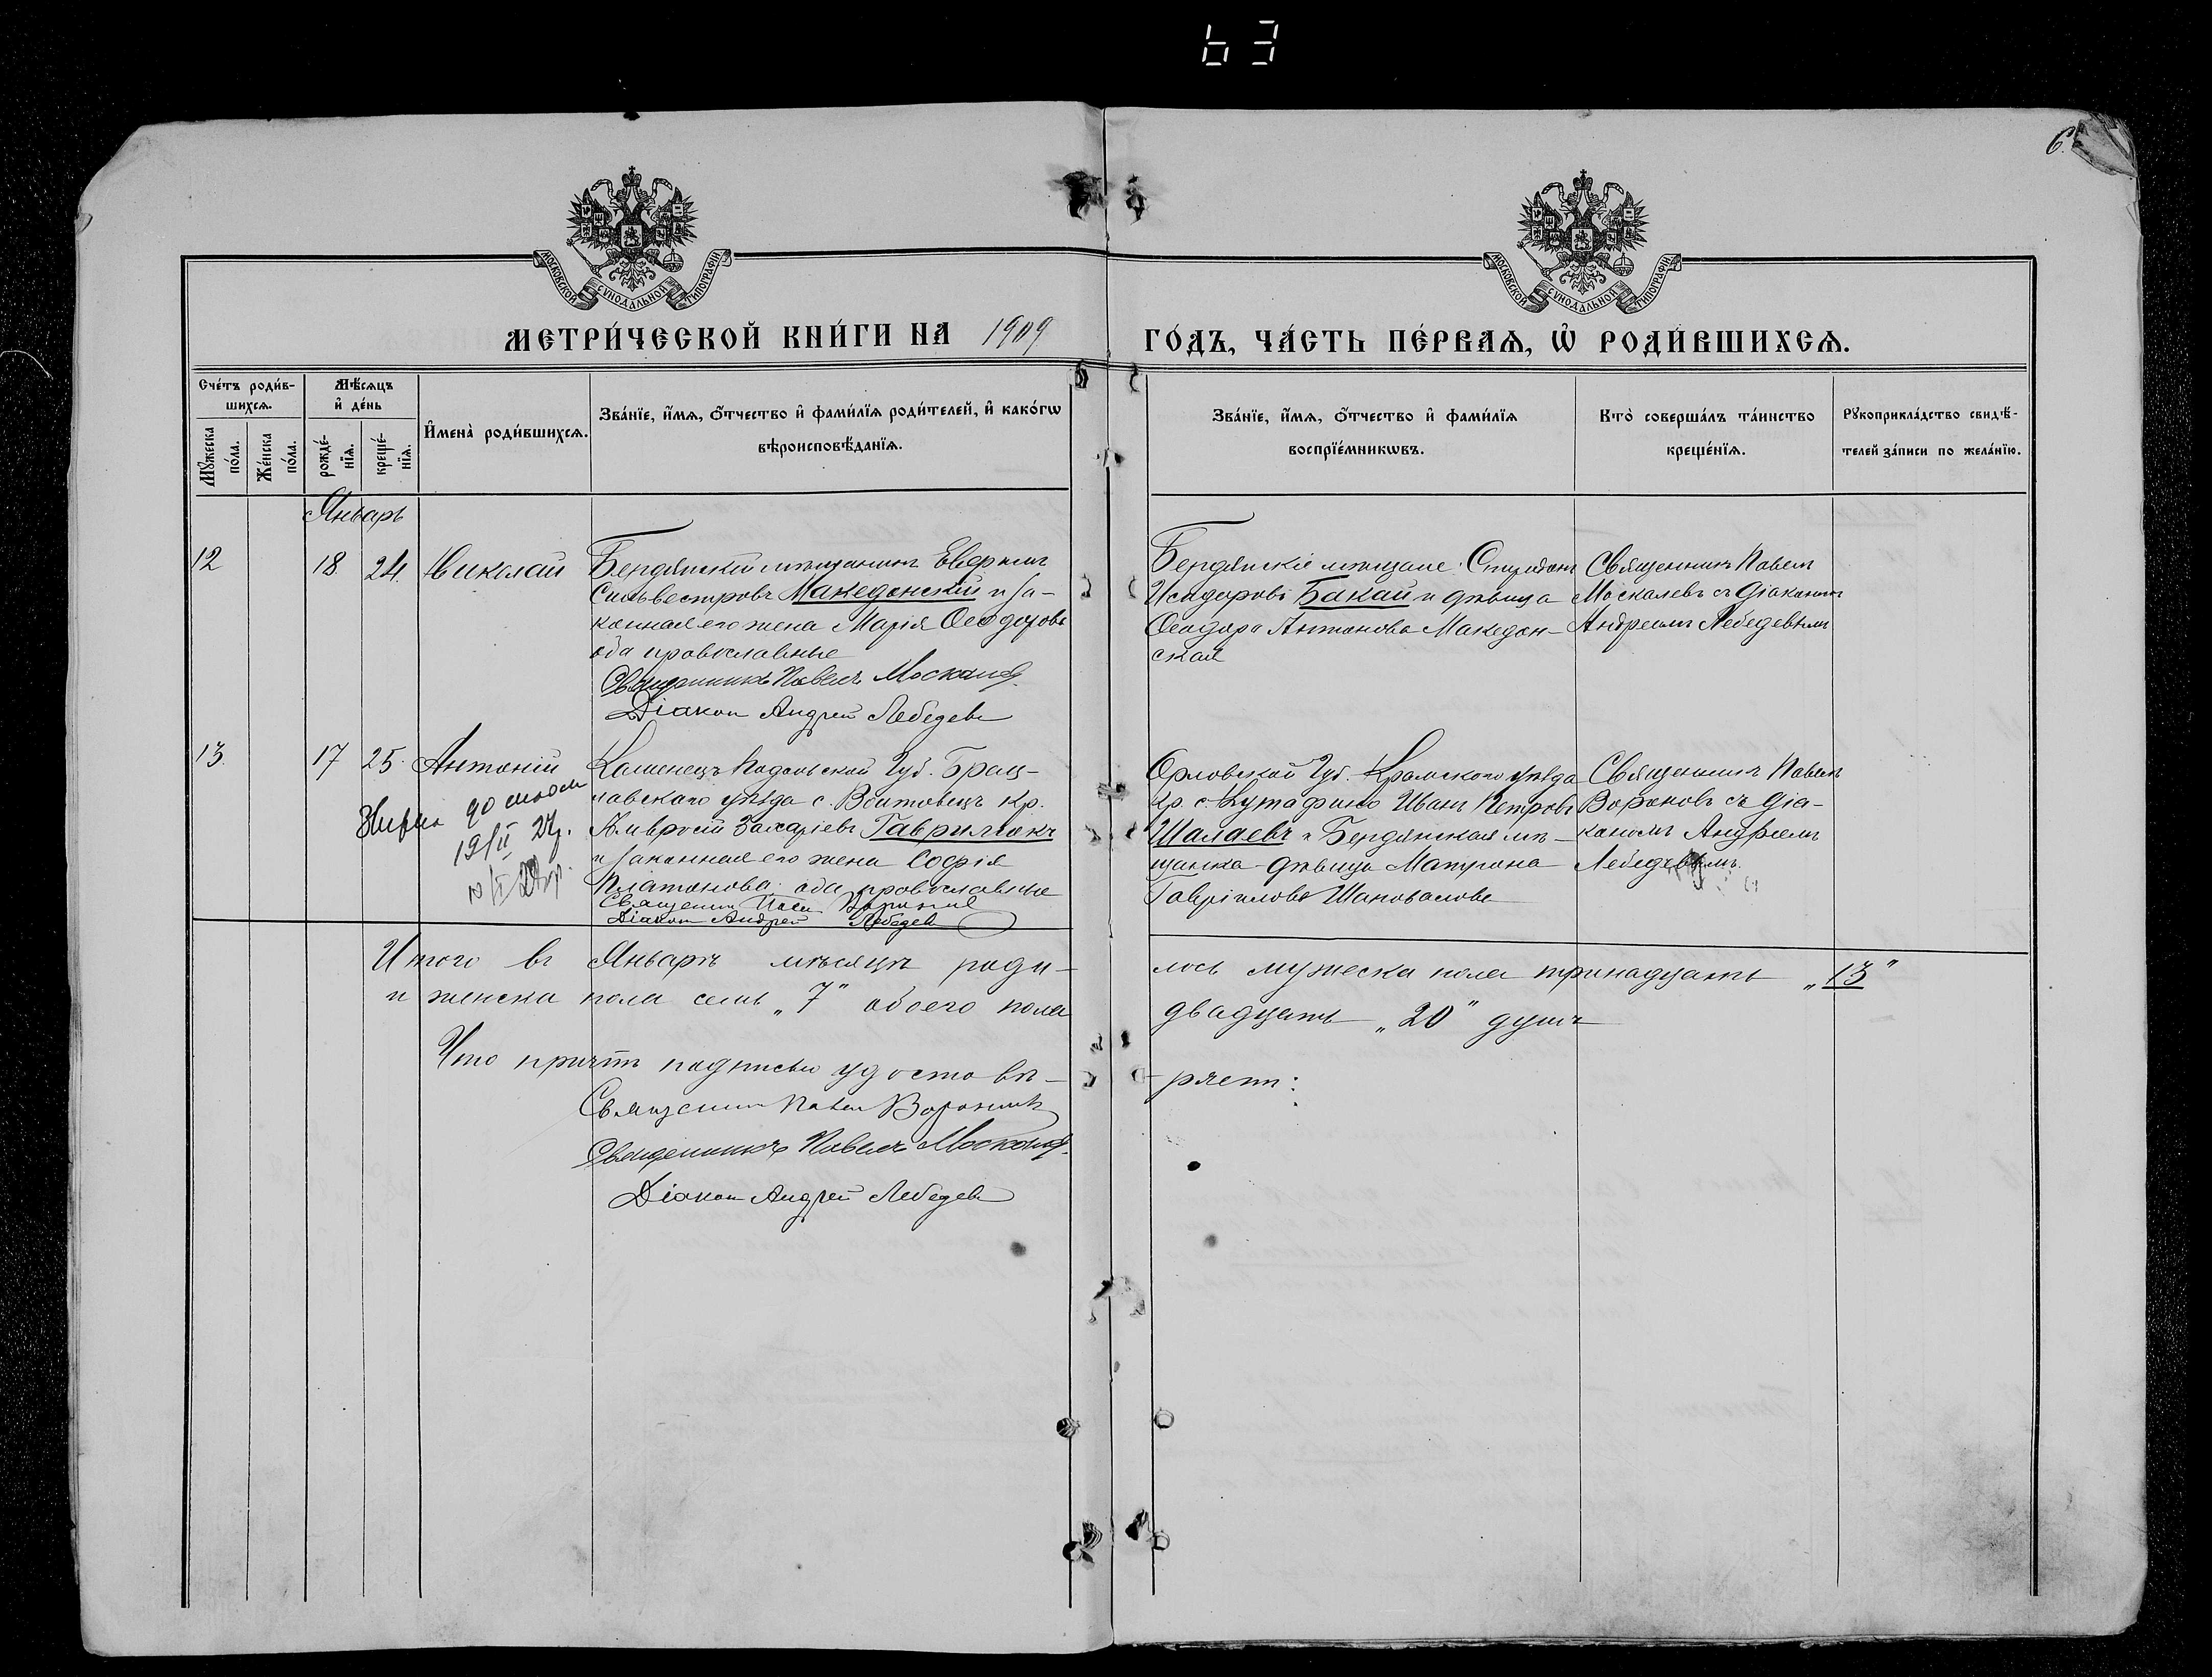 63
6
МОСКОВСКОЙ СУНОДАЛЬНОЙ ТИПОГРАФІИ
МОСКОВСКОЙ СУНОДАЛЬНОЙ ТИПОГРАФІИ
МЕТРИ́ЧЕСКОЙ КНИ́ГИ НА 1909 ГО́ДЪ, ЧА́СТЬ ПЕ́РВАѦ, Ѡ҆ РОДИ́ВШИХСѦ.
Сче́тъ роди́в-
шихсѧ.
Мѣ́сѧцъ
и҆ де́нь
Мꙋ́жеска
по́ла.
Же́нска
по́ла.
рожде́-
нїѧ.
креще́-
нїѧ.
И҆мена̀ роди́вшихсѧ.
Зва́нїе, и҆́мѧ, ѻ҆́тчество и҆ фами́лїѧ роди́телей, и҆ како́гѡ
вѣроисповѣ́данїѧ.
Зва́нїе, и҆́мѧ, ѻ҆́тчество и҆ фами́лїѧ
воспрїе́мникѡвъ.
Кто̀ соверша́лъ та́инство
креще́нїѧ.
Рꙋкоприкла́дство свидѣ́-
телей за́писи по жела́нїю.
Январь
12
18
24.
Николай
Бердянскій мѣщанинъ Еверкій
Сильвестровъ Македонскій и за-
конная его жена Марія Ѳеодорова
оба православные
Священникъ Павелъ Москалев
Діакон Андрей Лебедев
Бердянскіе мѣщане: Спиридонъ
Исидоровъ Бакай и дѣвица
Ѳеодора Антонова Македон-
ская
Священникъ Павелъ
Москалевъ съ діакономъ
Андреемъ Лебедевымъ
13.
17
25.
Антоній
19/II 27г.
Каменецъ Подольской Губ. Брац-
лавскаго уѣзда с. Войтовецъ кр.
Амвросій Захаріевъ Гаврилюкъ
и законная его жена Софія
Платонова. оба православные
Священник Павел Воронов
Діакон Андрей Лебедев
Орловской Губ. Кромского уѣзда
кр. с. Кутафино Иванъ Петровъ
Шалаевъ и Бердянская мѣ-
щанка-дѣвица Матрона
Гавріилова Шаповалова
Священникъ Павелъ
Вороновъ съ діа-
кономъ Андреемъ
Лебедевымъ.
Итого въ Январѣ мѣсяцѣ роди-
лось мужеска пола тринадцать „13”
и женска пола семь „7” обоего пола
двадцать „20” душъ
Что причтъ подписью удостовѣ-
ряетъ:
Священник Павел Воронов
Священникъ Павелъ Москалев
Діакон Андрей Лебедев